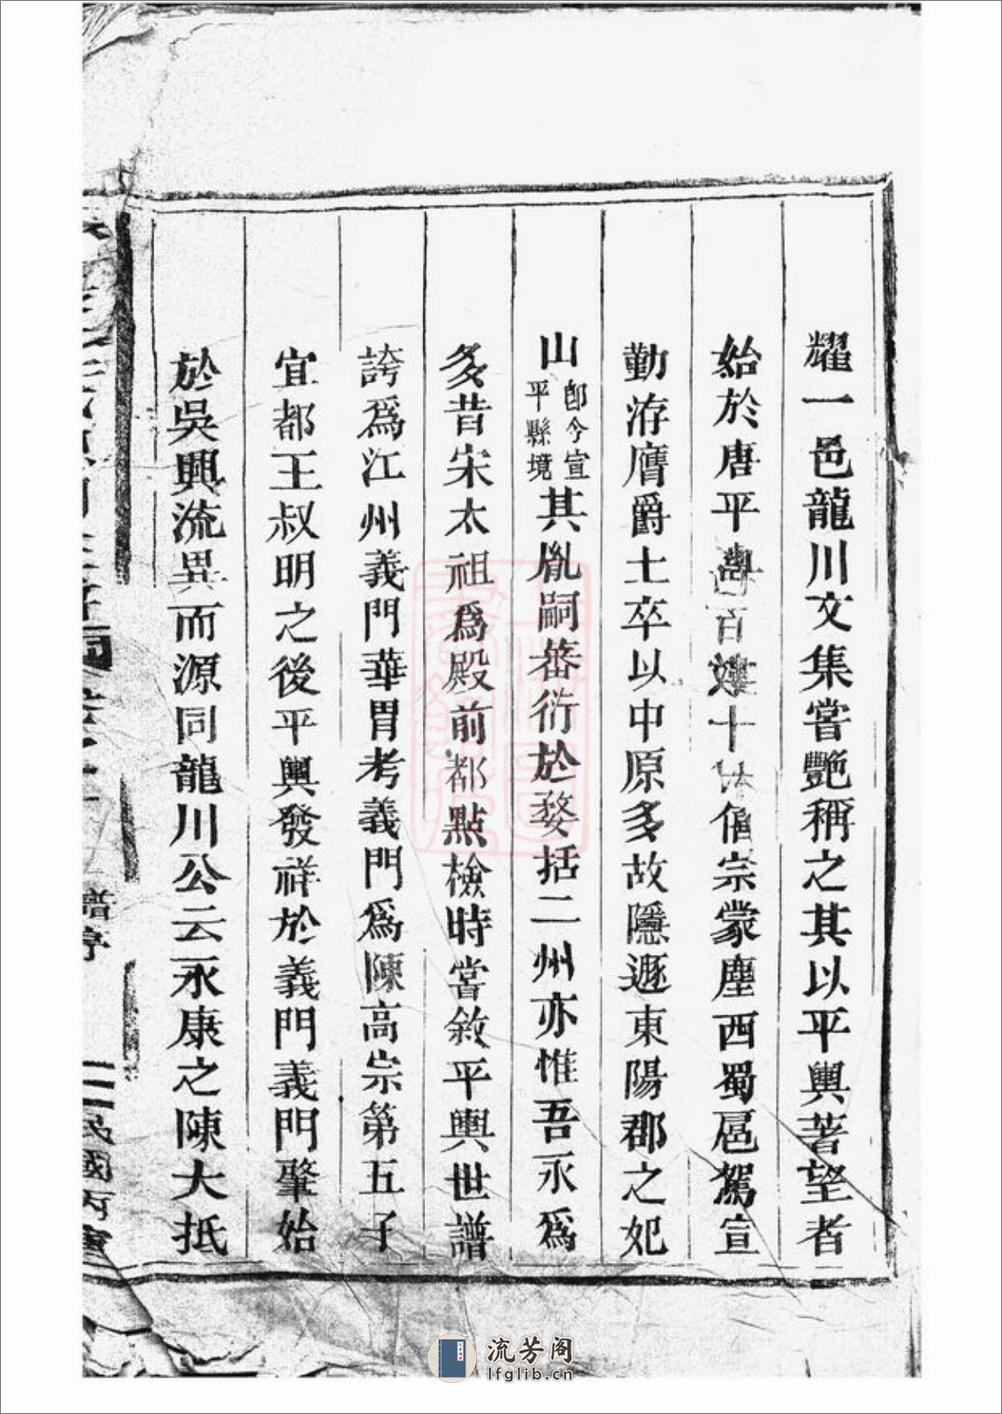 耀一邑龍川文集嘗艷稱之其以平輿著望者
始於唐平輿百十僖宗蒙塵西蜀扈駕宣
勤洊膺爵士卒以中原多故隱遯東陽郡之妃
山即今宣平縣境其胤嗣蕃衍於婺括二州亦惟吾永爲
多昔宋太祖爲殿前都點檢時嘗敘平輿世譜
誇爲江州義門華胄考義門爲陳高宗第五子
宜都王叔明之後平輿發祥於義門義門肇始
於吳興流異而源同龍川公云永康之陳大抵
譜序
民國丙寅
流芳阁
lfglib.cn